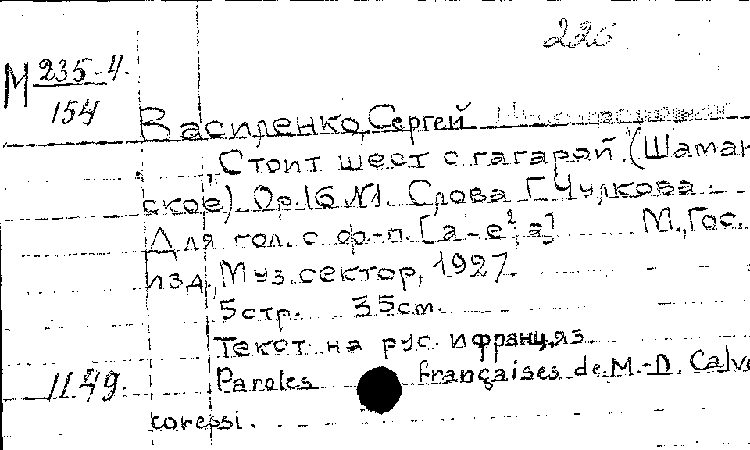 226
М 235-4.
154
Василенко, Сергей
„Стоит шест с гагарай. (Шаман
ское). Ор.16 №1. Слова Г. Чулкова.
Для гол. с ф-п. [a-e²; a] М., Гос.
изд., Муз. сектор, 1927.
5 стр. 35 см.
Текст на рус. и франц.яз.
11.49. Paroles françaises de M.-D. Calvo
coressi.